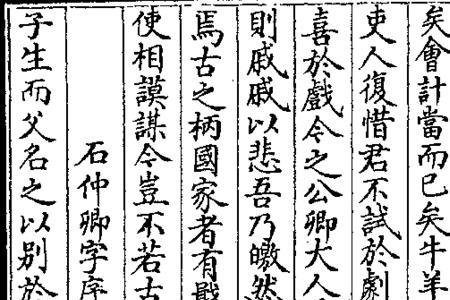 矣會計當而已矣牛羊
吏人復惜君不試於劇
喜於戲今之公卿大人
則戚戚以悲吾乃皦然
焉古之柄國家者有
使相謨謀今豈不若古
石仲卿字序
子生而父名之以別於